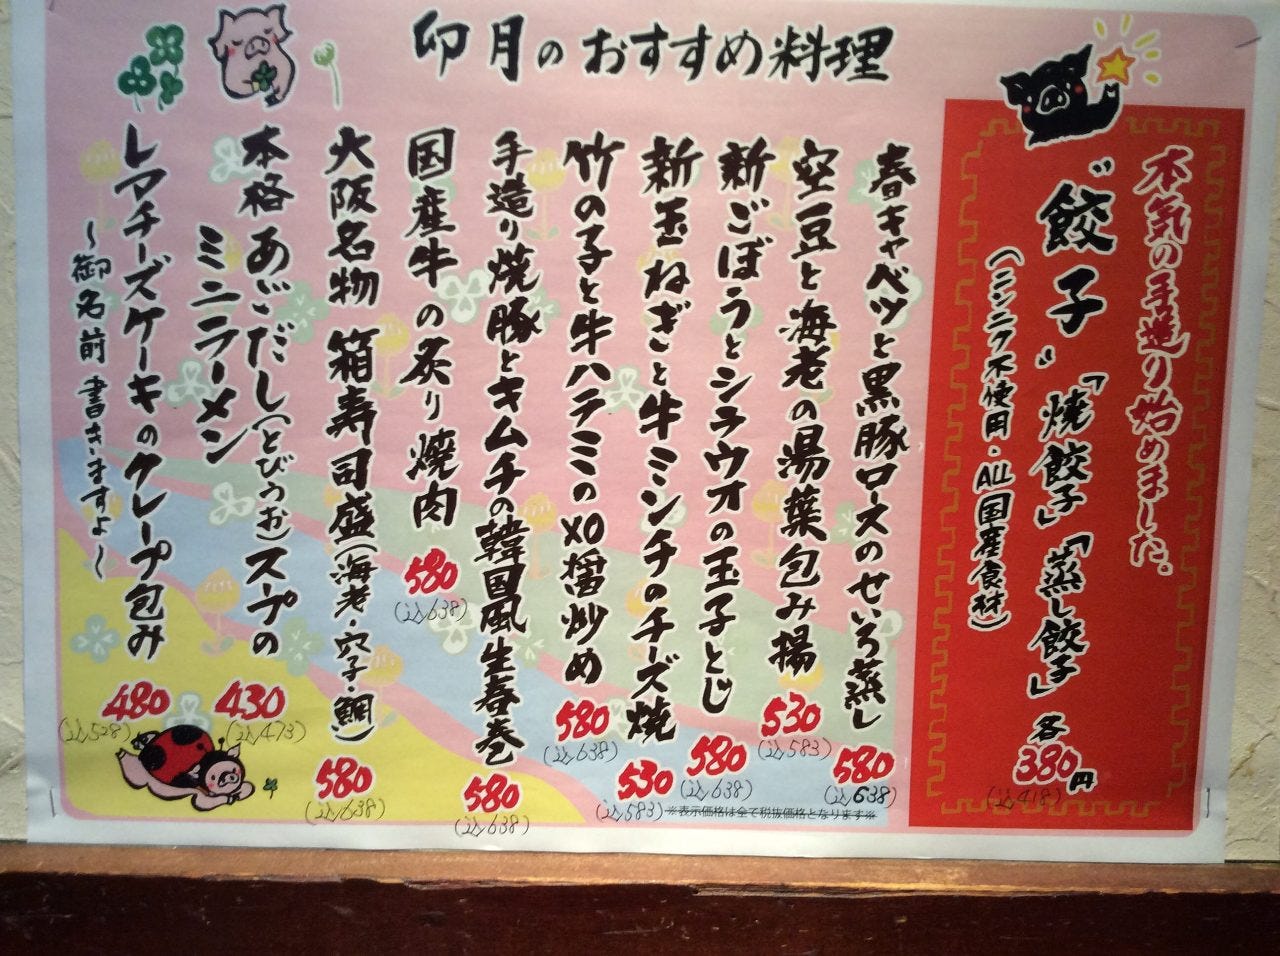 卯月のおすすめ料理
本気の手造り始めました。
〝餃子〟「焼餃子」「蒸し餃子」各380円
(込418)
(ニンニク不使用・ALL国産食材)
春キャベツと黒豚ロースのせいろ蒸し 580
(込638)
空豆と海老の湯葉包み揚 530
(込583)
新ごぼうとシラウオの玉子とじ 580
(込638)
新玉ねぎと牛ミンチのチーズ焼 530
(込583)
竹の子と牛ハラミのXO醤炒め 580
(込638)
手造り焼豚とキムチの韓国風生春巻 580
(込638)
国産牛の炙り焼肉 580
(込638)
大阪名物 箱寿司盛(海老・穴子・鯛) 580
(込638)
本格あごだし(とびうお)スープの
ミニラーメン 430
(込473)
レアチーズケーキのクレープ包み 480
(込528)
~御名前書きますよ~
※表示価格は全て税抜価格となります※